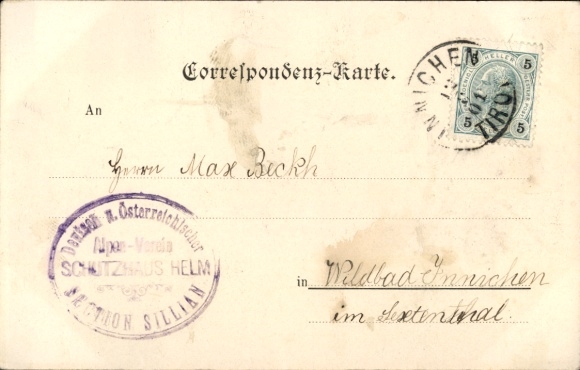 Correspondenz-Karte.
INNICHEN
01
TIROL
5 HELLER 5
5 5
An
Herrn Max Beckh
Deutsch u. Österreichischer
Alpen-Verein
SCHUTZHAUS HELM
SECTION SILLIAN
in Wildbad Innichen
im Sextenthal.